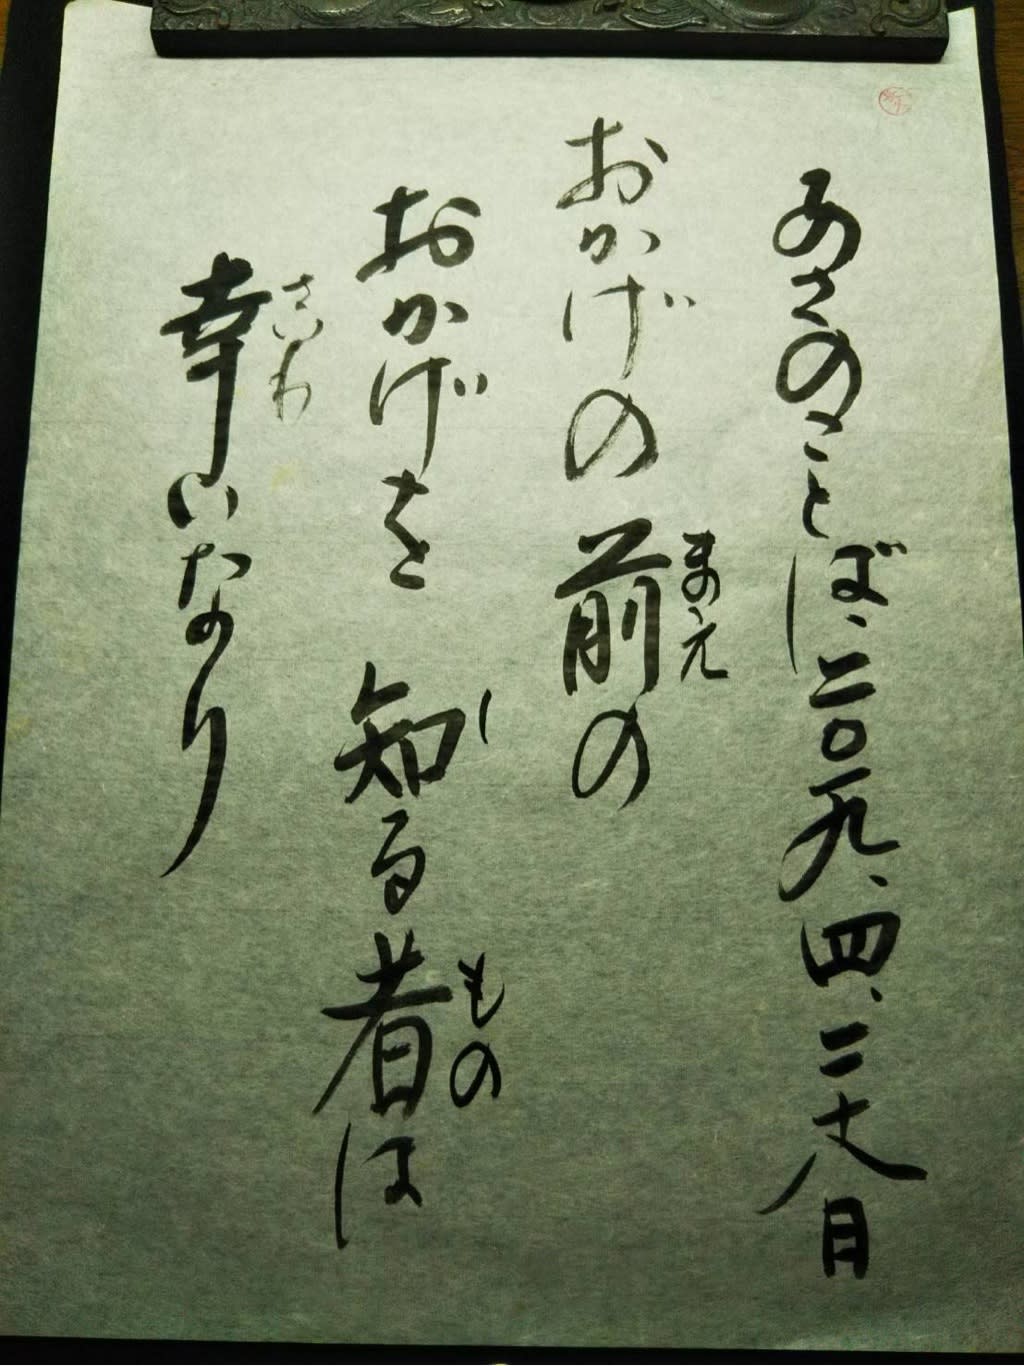 あさのことば、二〇一九、四、二十八日
まえ
おかげの前の
し
もの
おかげを知る者は
さいわ
幸いなり